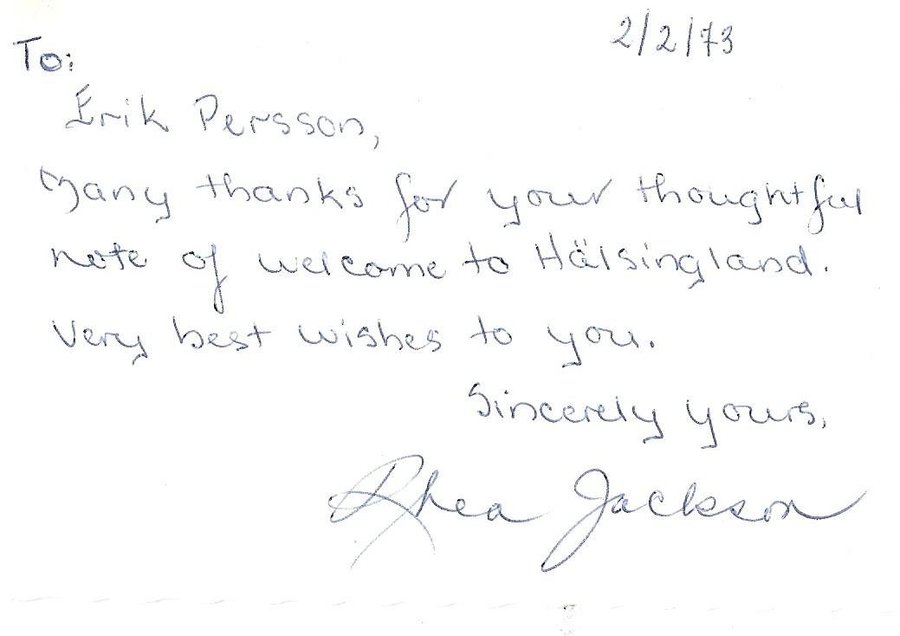 2/2/73
To:
Erik Persson,
Many thanks for your thoughtful
note of welcome to Hälsingland.
Very best wishes to you.
Sincerely yours,
Rhea Jackson